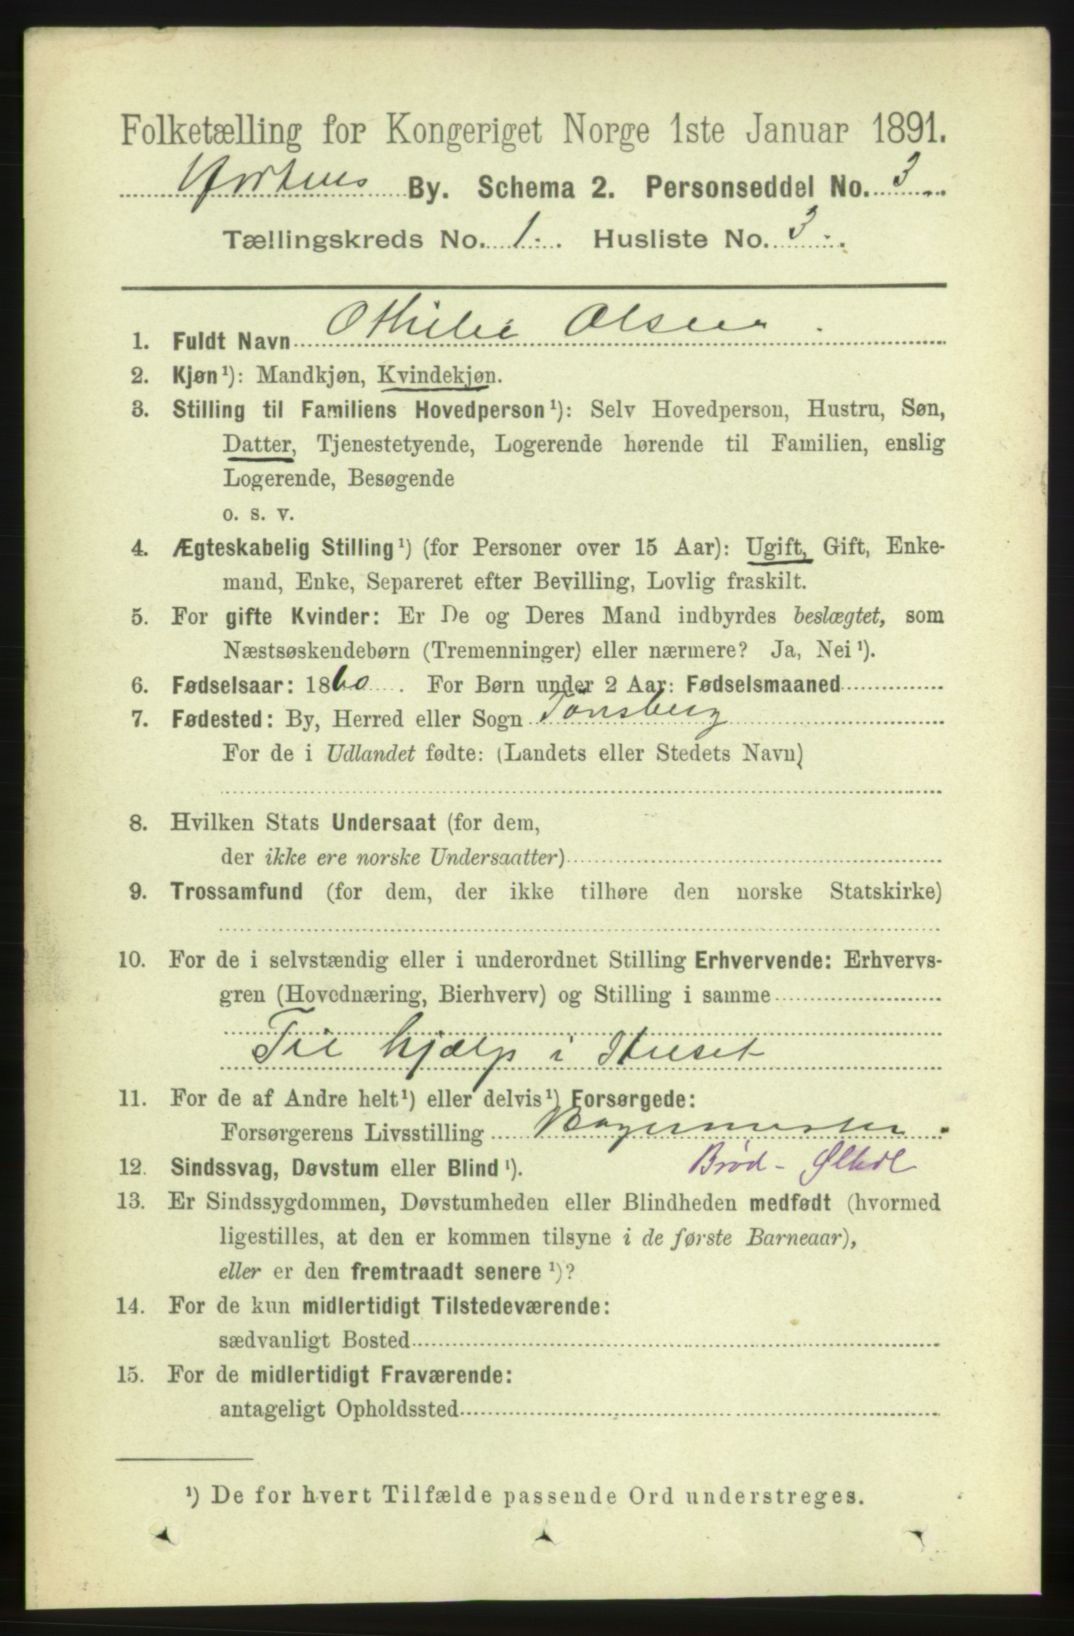 Folketælling for Kongeriget Norge 1ste Januar 1891.
Hortens By. Schema 2. Personseddel No. 3
Tællingskreds No. 1. Husliste No. 3.
1. Fuldt Navn Othilie Olsen.
2. Kjøn¹): Mandkjøn, Kvindekjøn.
3. Stilling til Familiens Hovedperson¹): Selv Hovedperson, Hustru, Søn,
Datter, Tjenestetyende, Logerende hørende til Familien, enslig
Logerende, Besøgende
o. s. v.
4. Ægteskabelig Stilling¹) (for Personer over 15 Aar): Ugift, Gift, Enke-
mand, Enke, Separeret efter Bevilling, Lovlig fraskilt.
5. For gifte Kvinder: Er De og Deres Mand indbyrdes beslægtet, som
Næstsøskendebørn (Tremenninger) eller nærmere? Ja, Nei¹).
6. Fødselsaar: 1860. For Børn under 2 Aar: Fødselsmaaned
7. Fødested: By, Herred eller Sogn Tønsberg
For de i Udlandet fødte: (Landets eller Stedets Navn)
8. Hvilken Stats Undersaat (for dem,
der ikke ere norske Undersaatter)
9. Trossamfund (for dem, der ikke tilhøre den norske Statskirke)
10. For de i selvstændig eller i underordnet Stilling Erhvervende: Erhvervs-
gren (Hovednæring, Bierhverv) og Stilling i samme
Til hjælp i Huset
11. For de af Andre helt¹) eller delvis¹) Forsørgede:
Forsørgerens Livsstilling Bagermester.
12. Sindssvag, Døvstum eller Blind¹). Brød- Ølhdl
13. Er Sindssygdommen, Døvstumheden eller Blindheden medfødt (hvormed
ligestilles, at den er kommen tilsyne i de første Barneaar),
eller er den fremtraadt senere¹)?
14. For de kun midlertidigt Tilstedeværende:
sædvanligt Bosted
15. For de midlertidigt Fraværende:
antageligt Opholdssted
¹) De for hvert Tilfælde passende Ord understreges.